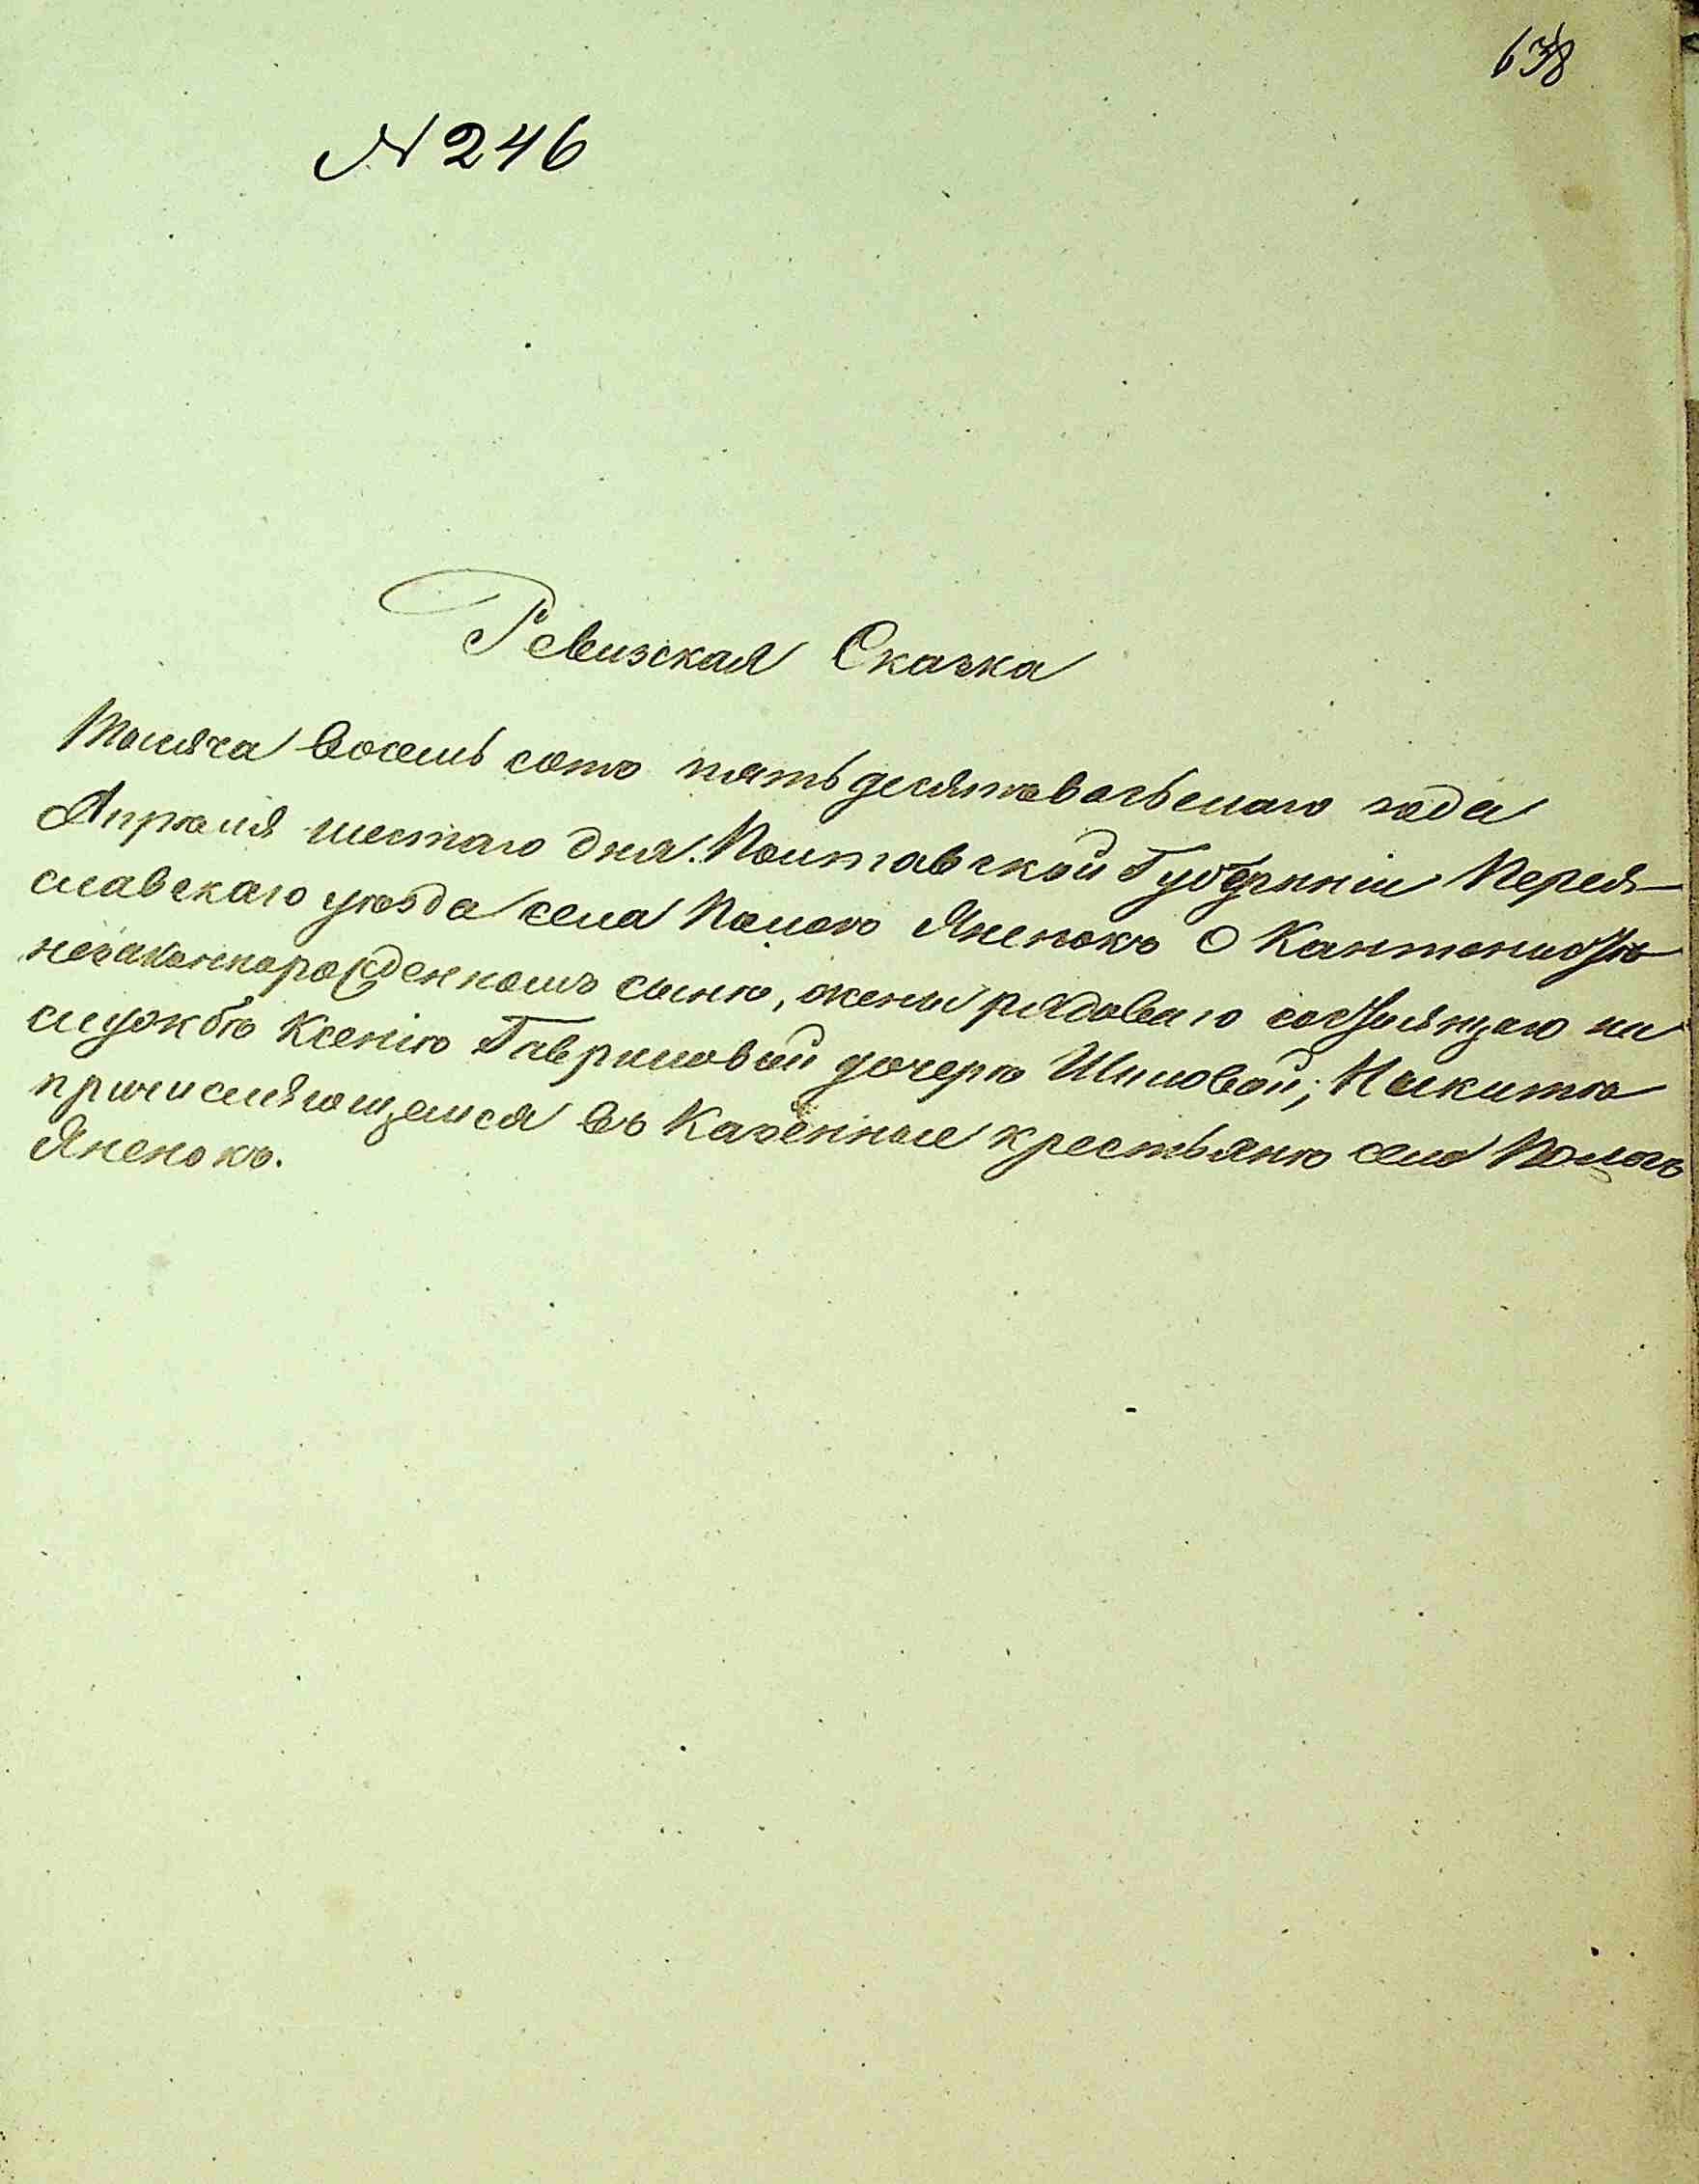 638
№ 246
Ревизская Сказка
Тысяча восемь сотъ пятьдесятовосьмаго года
Апрѣля шестаго дня. Полтавской Губерніи Перея-
славскаго уѣзда села Пологъ Яненокъ О Кантонистѣ
незаконнорожденномъ сынѣ, жены рядоваго состоящаго на
службѣ Ксеніи Гавриловой дочери Шиловой; Никитѣ
причисляющемся въ Казенные крестьяне села Пологъ
Яненокъ.